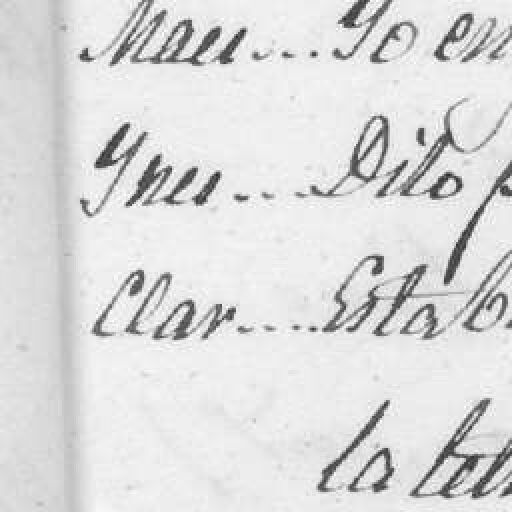 Mau....Yo en
Ynes....Dilo p
Clar.....Esta b
la tel